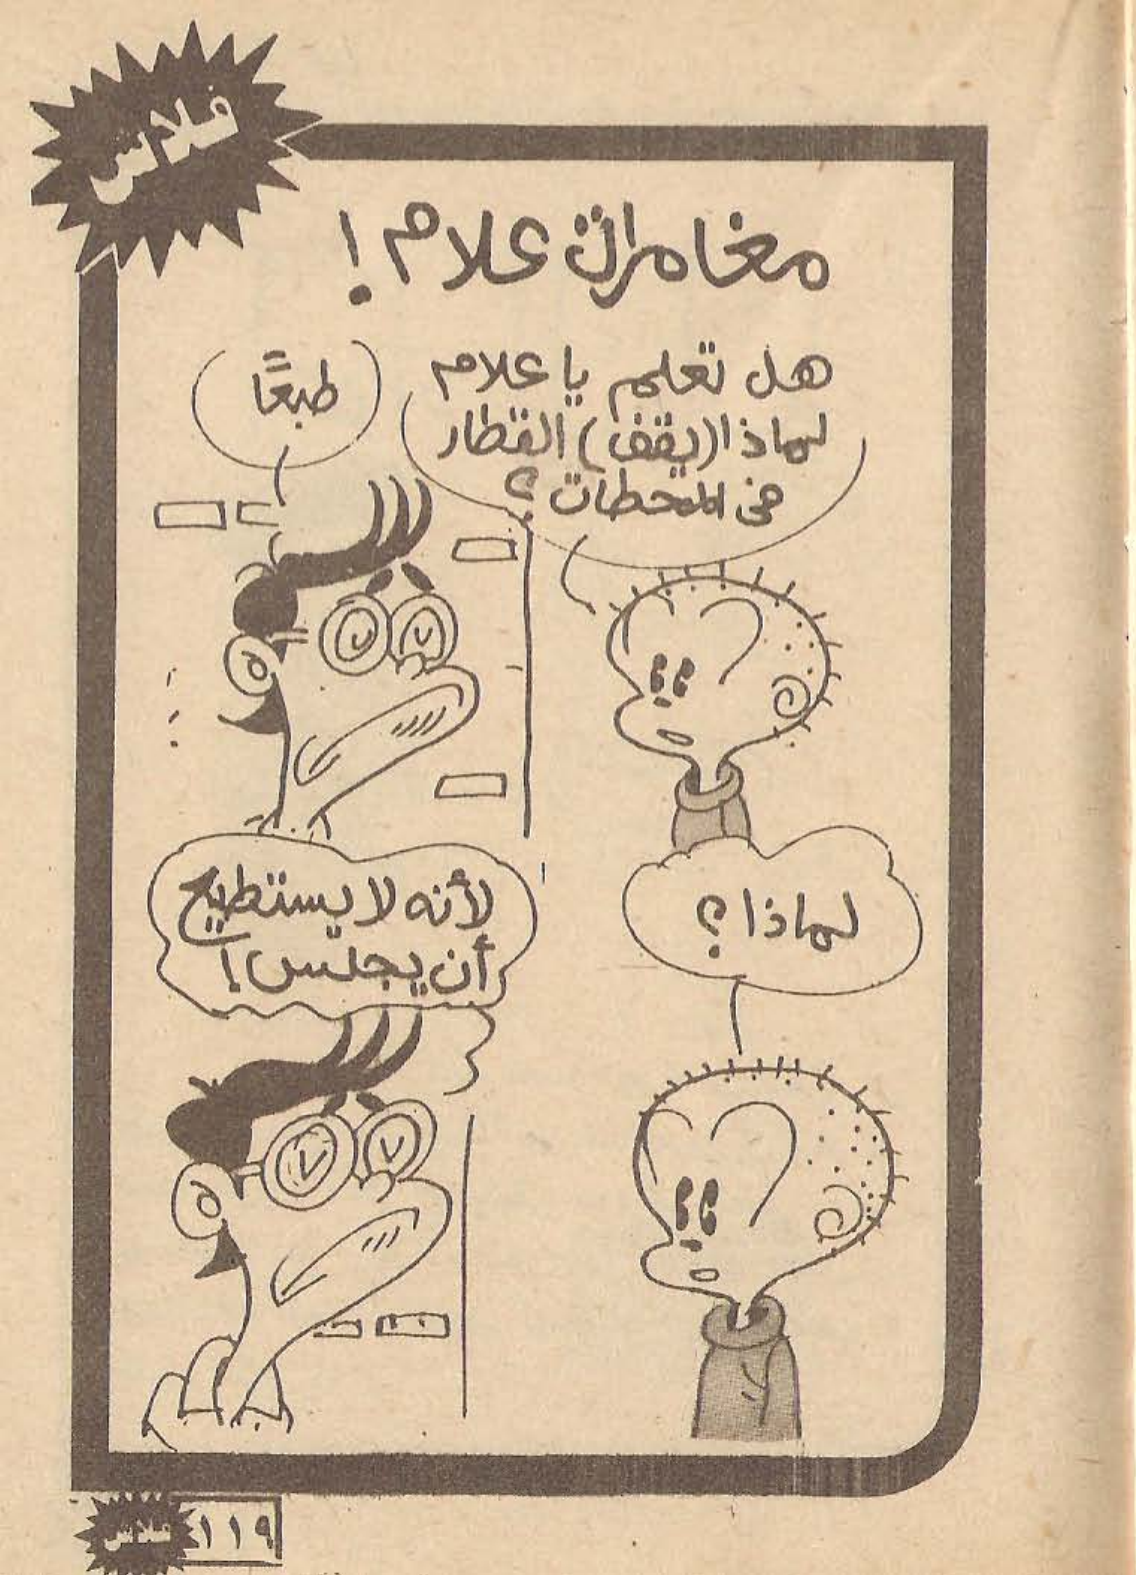 فلاش
مغامرات علام !
هل تعلم يا علام
لماذا (يقف) القطار
فى المحطات ؟
طبعًا
لماذا ؟
لأنه لا يستطيع
أن يجلس !
١١٩
فلاش